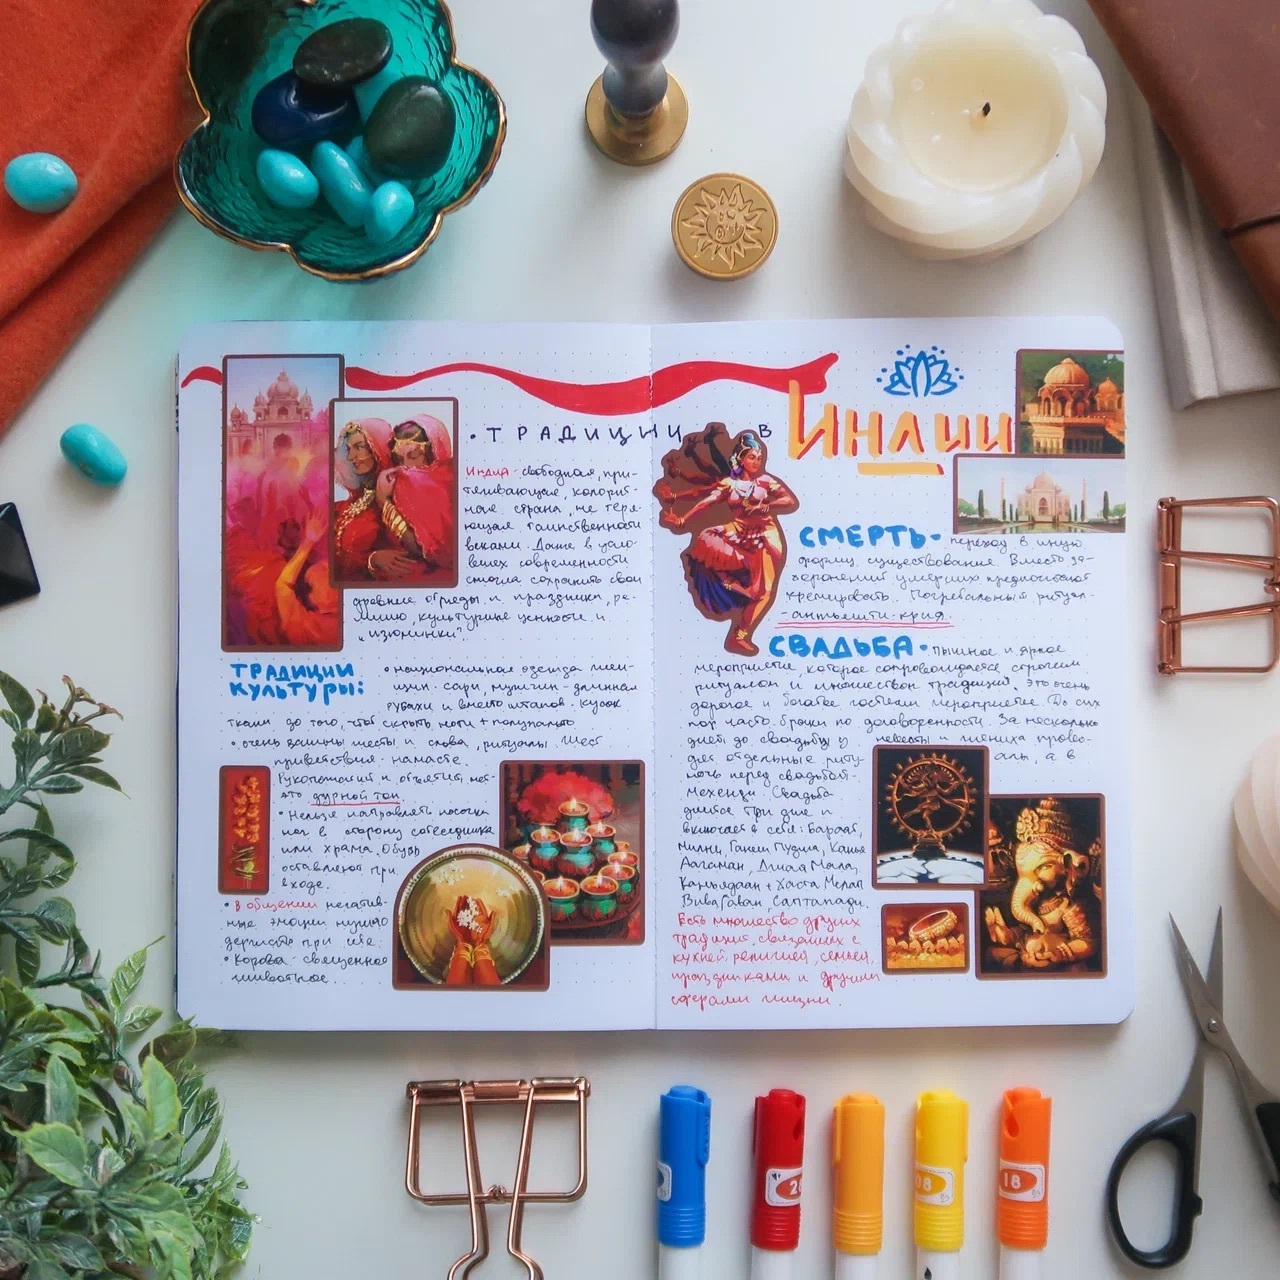 • ТРАДИЦИИ В
ИНДИИ
Индия - свободная, при-
тягивающая, колорит-
ная страна, не теря-
ющая таинственности
веками. Даже в усло-
виях современности
смогла сохранить свои
древние обряды и праздники, ре-
лигию, культурные ценности и
"изюминки".
ТРАДИЦИИ
КУЛЬТУРЫ:
• национальная одежда жен-
щин - сари, мужчин - длинная
рубаха и вместо штанов - кусок
ткани до того, чтоб скрыть ноги +
• очень важны жесты и слова, ритуалы. Жест
приветствия - намасте.
Рукопожатия и объятия, не-
это дурной тон
• Нельзя направлять носочки
ног в сторону собеседника
или храма. Обувь
оставляют при
входе.
• В общении негатив-
ные эмоции нужно
держать при себе.
• Корова - священное
животное.
СМЕРТЬ - переход в иную
форму существования. Вместо за-
хоронения умерших предпочитают
кремировать. Погребальный ритуал -
- антьешти-крия.
СВАДЬБА • пышное и яркое
мероприятие, которое сопровождается строгим
ритуалом и множеством традиций. Это очень
дорогое и богатое гостями мероприятие. До сих
пор часто браки по договоренности. За несколько
дней до свадьбы у невесты и жениха прово-
дят отдельные ритуалы, а в
ночь перед свадьбой -
мехенди. Свадьба
длится три дня и
включает в себя: Бараат,
Милни, Ганеш Пуджа, Канья
Аагаман, Джай Мала,
Каньядаан + Хаста Мелап
Виваб Гаван, Саптапади.
Есть множество других
традиций, связанных с
кухней, религией, семьёй,
праздниками и другими
сферами жизни.
28
08
18